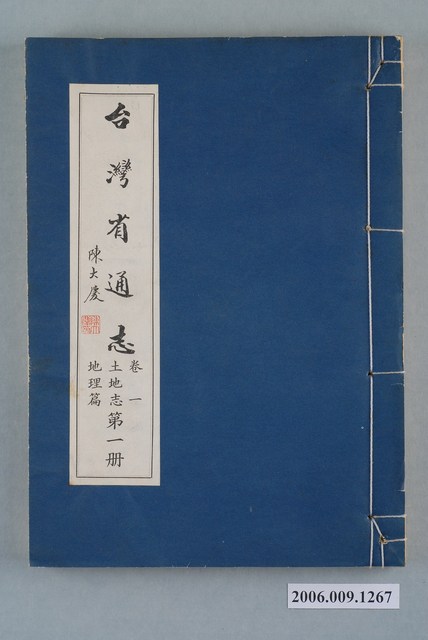 台灣省通志
卷一
土地志
地理篇
第一册
陳大慶
2006.009.1267